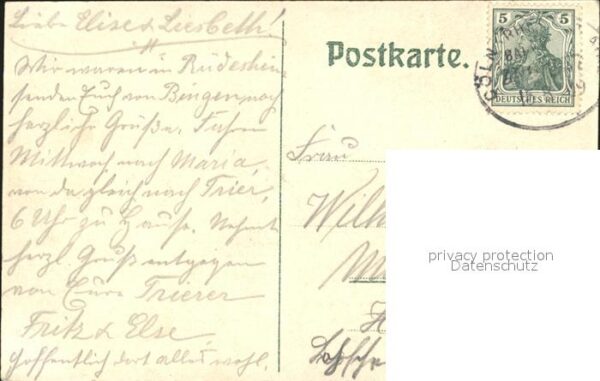 Liebe Elise & Liesbeth!
Wir waren in Rüdesheim
senden Euch von Bingen noch
herzliche Grüße. Fahren
Mittwoch nach Maria,
von da gleich nach Trier,
6 Uhr zu Hause. Nehmt
herzl. Gruß entgegen
von Eure Trierer
Fritz & Else.
Hoffentlich dort alles wohl.
Postkarte.
5 5
DEUTSCHES REICH
CÖLN
BAHN
Frau
Wilh
privacy protection
Datenschutz